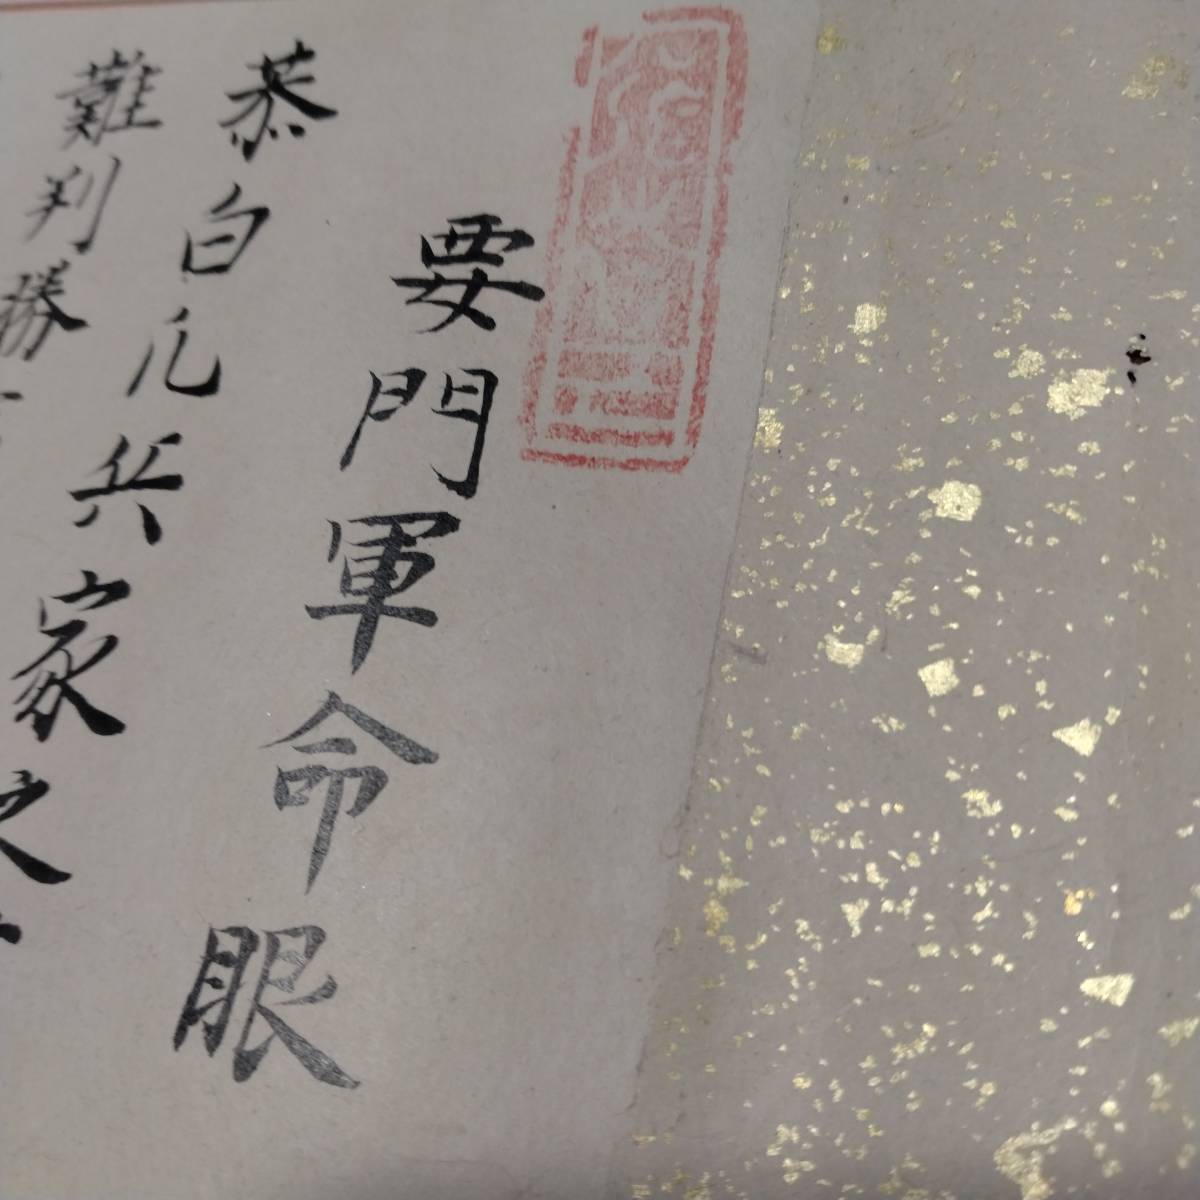 要門軍命眼
恭白凡兵家之
難判勝